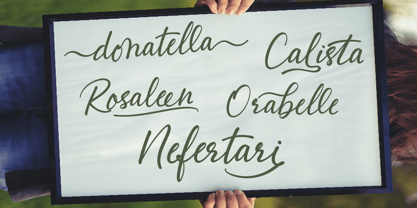 donatella Calista
Rosaleen Orabelle
Nefertari